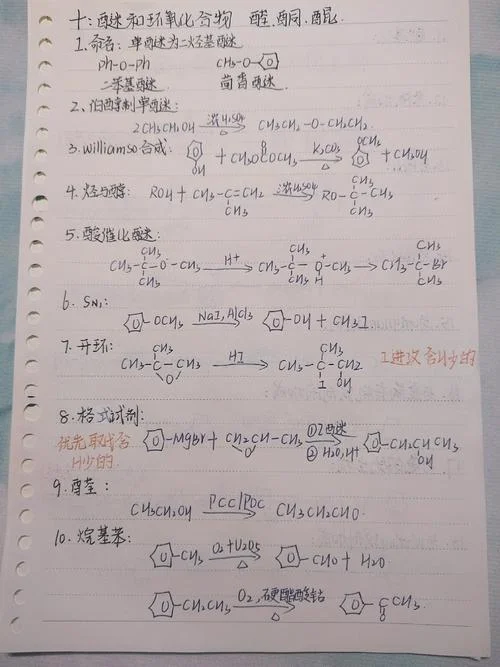 十：醚和环氧化合物 醛.酮.醌.
1.命名：单醚为二烃基醚
ph-O-ph CH3-O-
二苯基醚 茴香醚
2、伯醇制单醚：
2CH3CH2OH 浓H2SO4 △ CH3CH2-O-CH2CH3.
3.Williamso合成： OH + CH3OCOCH3 K2CO3 △ OCH3 + CH3OH
4.烃与醇： ROH + CH3-C=CH2 CH3 浓H2SO4 RO-C-CH3 CH3 CH3
5.酸催化醚：
CH3-C-O-CH3 CH3 CH3 H+ CH3-C-O-CH3 CH3 CH3 H + CH3-C-Br CH3 CH3
6. SN1：
-OCH3 NaI,AlCl3 -OH + CH3I
7.开环：
CH3-C-CH-CH3 CH3 O HI CH3-C-CH2 CH3 I OH I进攻含H少的
8.格式试剂：
优先取代含H少的.
-MgBr + CH2-CH-CH3 O ①乙醚 ②H2O,H+ -CH2CHCH3 OH
9.醇：
CH3CH2OH PCC/PDC CH3CH2CHO.
10.烷基苯：
-CH3 O2+V2O5 △ -CHO + H2O
-CH2CH3 O2,硬酯酸钴 △ -C-CH3. O